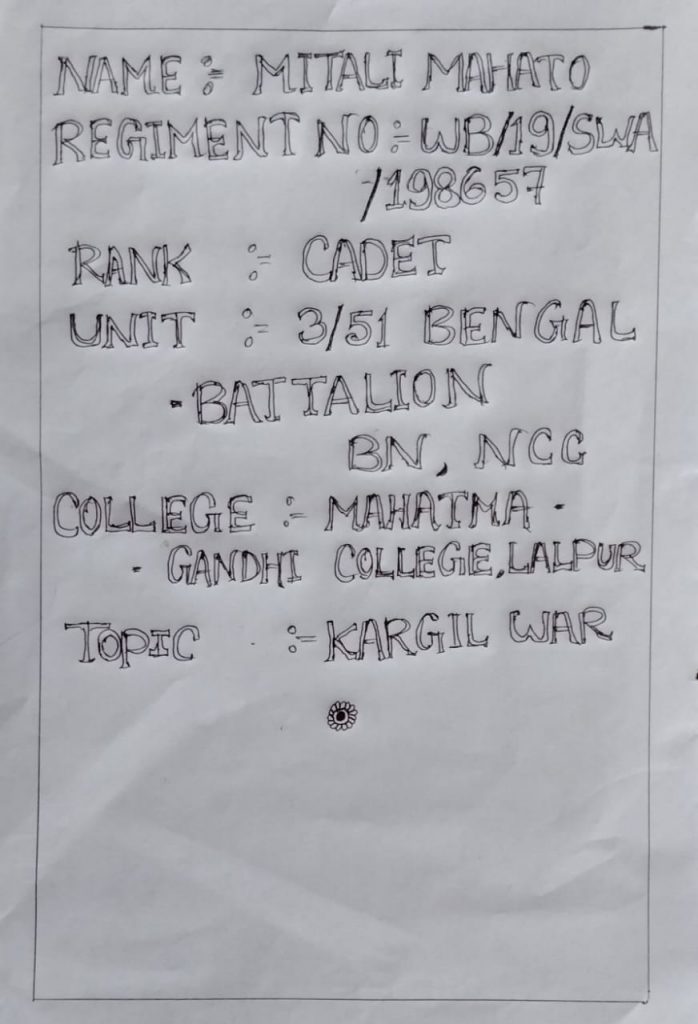 NAME :- MITALI MAHATO
REGIMENT NO :- WB/19/SWA
/198657
RANK :- CADET
UNIT :- 3/51 BENGAL
BATTALION
BN, NCC
COLLEGE :- MAHATMA
GANDHI COLLEGE, LALPUR
TOPIC :- KARGIL WAR